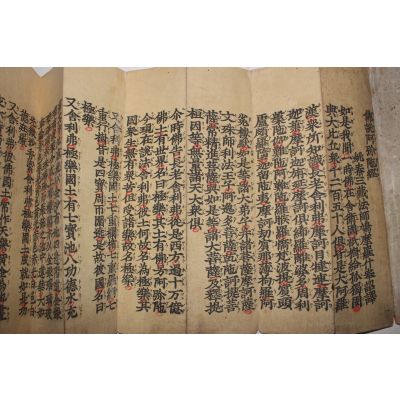 佛說阿彌陀經
姚秦三藏法師鳩摩羅什奉詔譯
如是我聞一時佛在舍衛國祇樹給孤獨園
與大比丘衆千二百五十人俱皆是大阿羅
漢衆所知識長老舍利弗摩訶目揵連摩訶
迦葉摩訶迦旃延摩訶俱絺羅離婆多周利
槃陀伽難陀阿難陀羅睺羅憍梵波提賓頭
盧頗羅墮迦留陀夷摩訶劫賓那薄拘羅阿
㝹樓馱如是等諸大弟子并諸菩薩摩訶薩
文殊師利法王子阿逸多菩薩乾陀訶提菩
薩常精進菩薩與如是等諸大菩薩及釋提
桓因等無量諸天大衆俱
尒時佛告長老舍利弗從是西方過十万億
佛土有世界名曰極樂其土有佛号阿弥陁
今現在說法舍利弗彼土何故名為極樂其
國衆生無有衆苦但受諸樂故名極樂
又舍利弗極樂國土七重欄楯七重羅網七
重行樹皆是四寶周帀圍繞是故彼國名曰
極樂
又舍利弗極樂國土有七寶池八功德水充
又舍利弗彼佛國土常作天樂黃金為